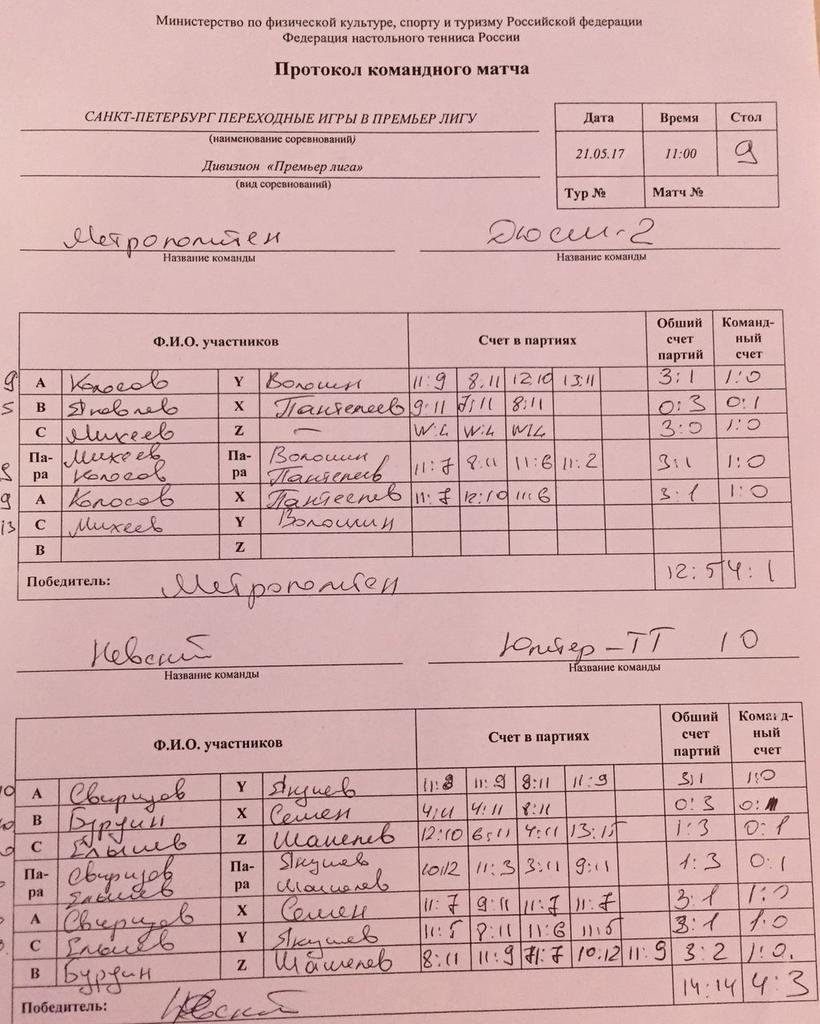 Министерство по физической культуре, спорту и туризму Российской федерации
Федерация настольного тенниса России
Протокол командного матча
САНКТ-ПЕТЕРБУРГ ПЕРЕХОДНЫЕ ИГРЫ В ПРЕМЬЕР ЛИГУ
(наименование соревнований)
Дивизион «Премьер лига»
(вид соревнований)
Дата Время Стол
21.05.17 11:00 9
Тур № Матч №
Метрополитен Дюсш-2
Название команды Название команды
Ф.И.О. участников Счет в партиях Общий счет партий Команд-ный счет
9 A Колосов Y Волошин 11:9 8:11 12:10 13:11 3:1 1:0
5 B Яковлев X Пантелеев 9:11 7:11 8:11 0:3 0:1
C Михеев Z — W:L W:L W:L 3:0 1:0
Па-ра Михеев Колосов Па-ра Волошин Пантелеев 11:7 8:11 11:6 11:2 3:1 1:0
9 A Колосов X Пантеелев 11:7 12:10 11:6 3:1 1:0
13 C Михеев Y Волошин
B Z
Победитель: Метрополитен 12:5 4:1
Невский Юпитер-ТТ 10
Название команды Название команды
Ф.И.О. участников Счет в партиях Общий счет партий Команд-ный счет
A Свиридов Y Якушев 11:8 11:9 8:11 11:9 3:1 1:0
B Бурдин X Семен 4:11 4:11 8:11 0:3 0:1
C Елышев Z Шашелев 12:10 6:11 4:11 13:15 1:3 0:1
Па-ра Свиридов Елышев Па-ра Якушев Шашелев 10:12 11:3 3:11 9:11 1:3 0:1
A Свиридов X Семен 11:7 9:11 11:7 11:7 3:1 1:0
C Елышев Y Якушев 11:5 8:11 11:6 11:5 3:1 1:0
B Бурдин Z Шашелев 8:11 11:9 11:7 10:12 11:9 3:2 1:0.
Победитель: Невский 14:14 4:3